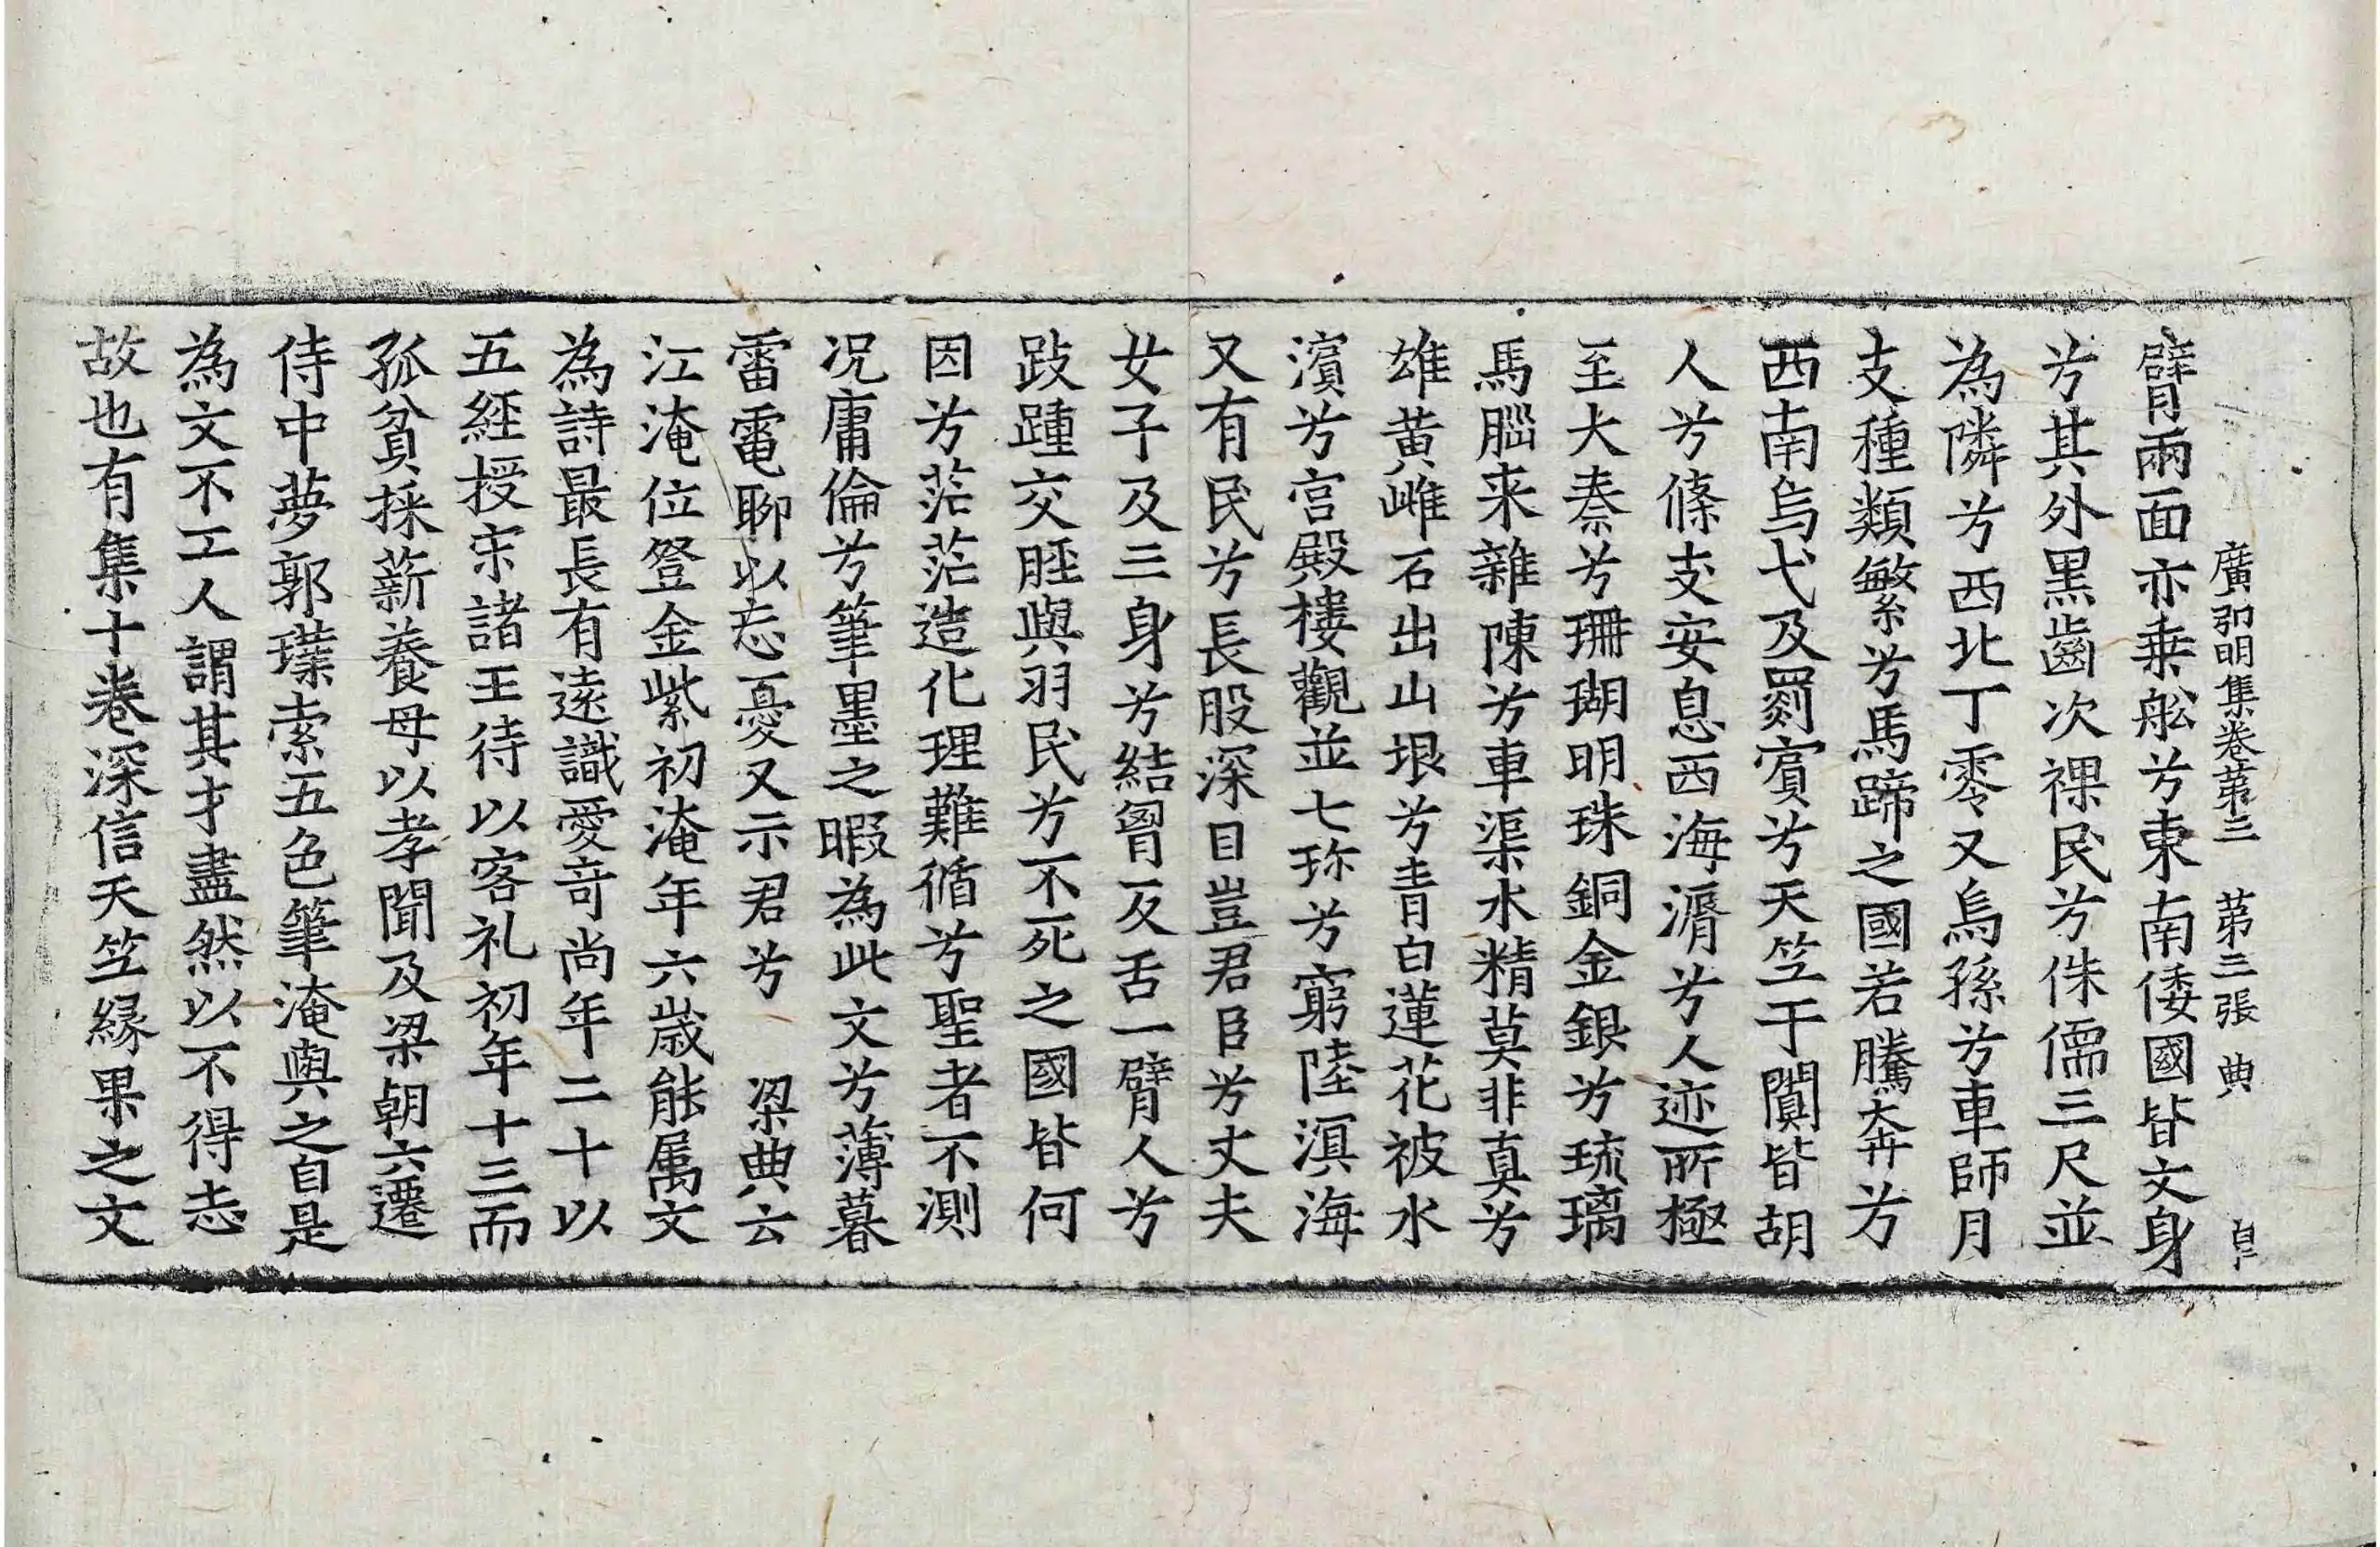 廣弘明集卷第三　第三張　典　皁
臂兩面亦乗舩芳東南倭國皆文身
芳其外黒齒次裸民芳侏儒三尺並
為隣芳西北丁零又烏孫芳車師月
支種類繁芳馬蹄之國若騰奔芳
西南烏弋及罽賓芳天笁于闐皆胡
人芳條支安息西海漘芳人迹所極
至大秦芳珊瑚明珠銅金銀芳琉璃
馬腦来雜陳芳車渠水精莫非真芳
雄黄雌石出山垠芳青白蓮花被水
濱芳宫殿樓觀並七珎芳窮陸溟海
又有民芳長股深目豈君臣芳丈夫
女子及三身芳結胷反舌一臂人芳
跂踵交脛與羽民芳不死之國皆何
因芳茫茫造化理難循芳聖者不測
况庸倫芳筆墨之暇為此文芳薄暮
雷電聊以忘憂又示君芳　梁典云
江淹位登金紫初淹年六歳能属文
為詩最長有逺識愛竒尚年二十以
五經授宋諸王待以客礼初年十三而
孤貧採薪養母以孝聞及梁朝六遷
侍中夢郭璞索五色筆淹與之自是
為文不工人謂其才盡然以不得志
故也有集十巻深信天笁縁果之文